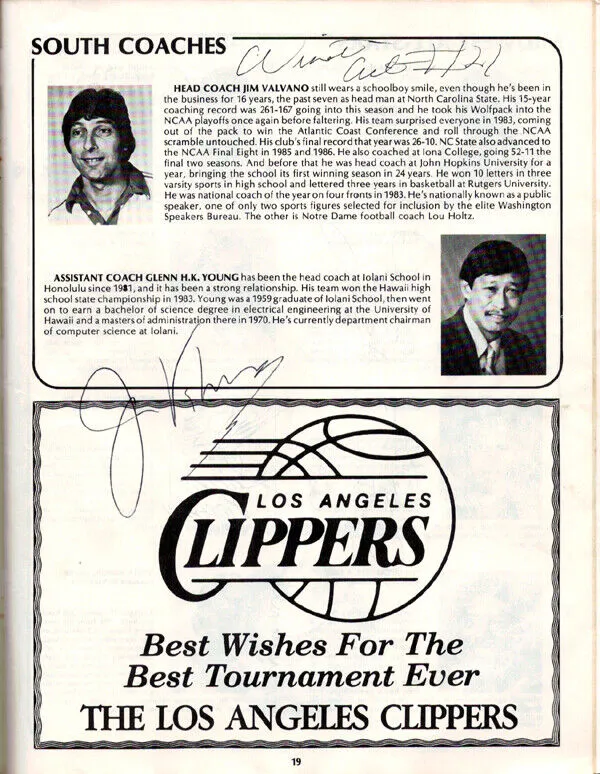 SOUTH COACHES
HEAD COACH JIM VALVANO still wears a schoolboy smile, even though he's been in
the business for 16 years, the past seven as head man at North Carolina State. His 15-year
coaching record was 261-167 going into this season and he took his Wolfpack into the
NCAA playoffs once again before faltering. His team surprised everyone in 1983, coming
out of the pack to win the Atlantic Coast Conference and roll through the NCAA
scramble untouched. His club's final record that year was 26-10. NC State also advanced to
the NCAA Final Eight in 1985 and 1986. He also coached at Iona College, going 52-11 the
final two seasons. And before that he was head coach at John Hopkins University for a
year, bringing the school its first winning season in 24 years. He won 10 letters in three
varsity sports in high school and lettered three years in basketball at Rutgers University.
He was national coach of the year on four fronts in 1983. He's nationally known as a public
speaker, one of only two sports figures selected for inclusion by the elite Washington
Speakers Bureau. The other is Notre Dame football coach Lou Holtz.
ASSISTANT COACH GLENN H.K. YOUNG has been the head coach at Iolani School in
Honolulu since 1981, and it has been a strong relationship. His team won the Hawaii high
school state championship in 1983. Young was a 1959 graduate of Iolani School, then went
on to earn a bachelor of science degree in electrical engineering at the University of
Hawaii and a masters of administration there in 1970. He's currently department chairman
of computer science at Iolani.
LOS ANGELES
CLIPPERS
Best Wishes For The
Best Tournament Ever
THE LOS ANGELES CLIPPERS
19